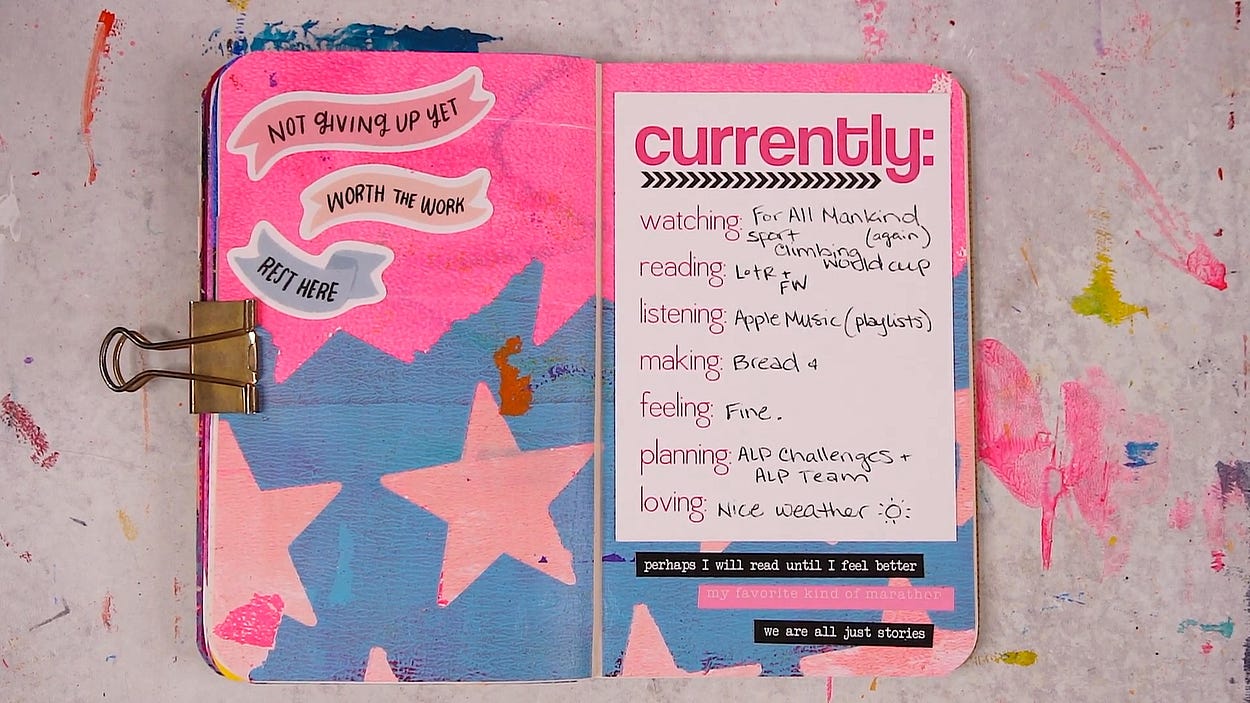 NOT GIVING UP YET
WORTH THE WORK
REST HERE
currently:
watching: For All Mankind
sport (again)
climbing
world cup
reading: LotR +
FW
listening: Apple Music (playlists)
making: Bread &
feeling: Fine.
planning: ALP Challenges +
ALP Team
loving: Nice weather
perhaps I will read until I feel better
my favorite kind of marathon
we are all just stories